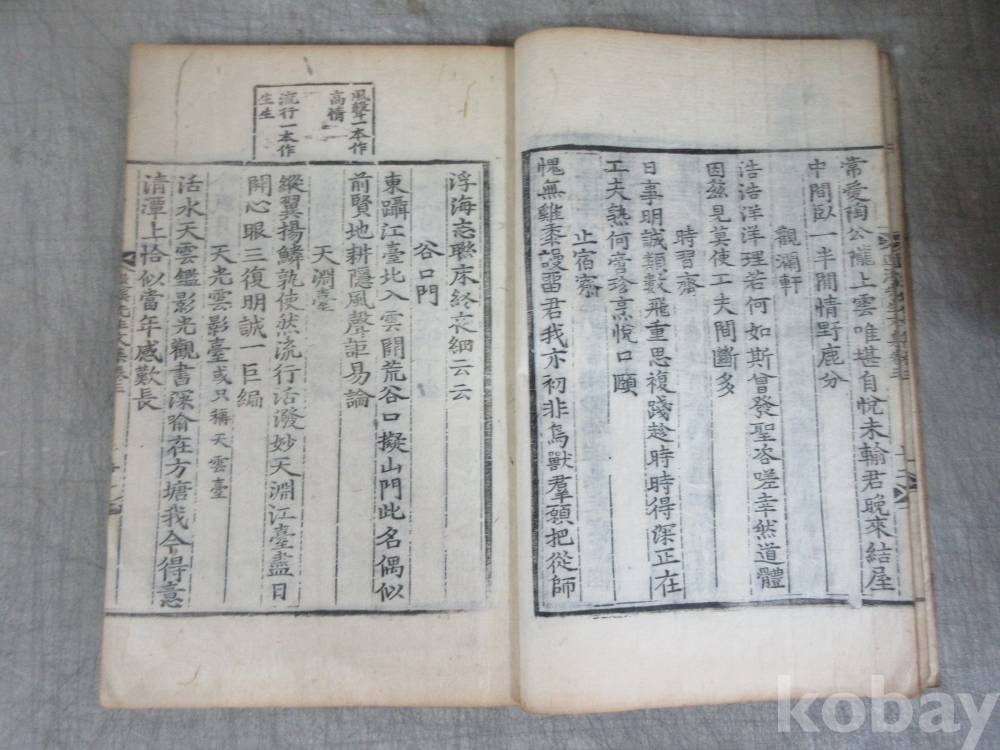 常愛陶公隴上雲唯堪自悅未輸君晚來結屋
中間臥一半閒情野鹿分
觀瀾軒
浩浩洋洋理若何如斯曾發聖咨嗟幸然道體
因茲見莫使工夫間斷多
時習齋
日事明誠類數飛重思複踐趁時時得深正在
工夫熟何啻珍烹悅口頤
止宿齋
愧無雞黍謾留君我亦初非鳥獸羣願把從師
浮海志聯床終夜細云云
谷口門
東躡江臺北入雲開荒谷口擬山門此名偶似
前賢地耕隱風聲詎易論
天淵臺
縱翼揚鱗孰使然流行活潑妙天淵江臺盡日
開心眼三復明誠一巨編
天光雲影臺或只稱天雲臺
活水天雲鑑影光觀書深喻在方塘我今得意
清潭上恰似當年感歎長
風聲一本作
高情
流行一本作
生生
kobay